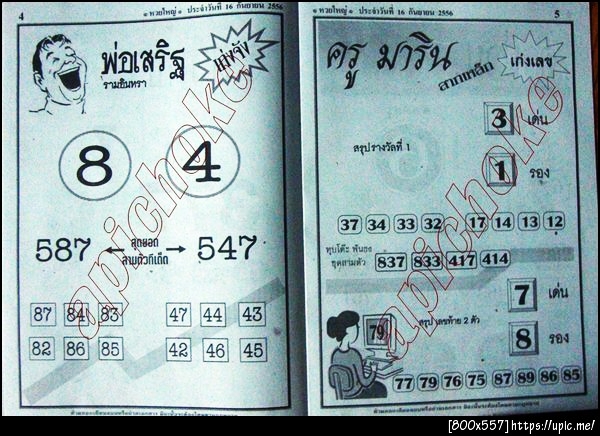 4
● หวยใหญ่ ● ประจำวันที่ 16 กันยายน 2556
พ่อเสริฐ
รามอินทรา
เก่งจัง
8 4
587 ← สุดยอด → 547
สามตัวทีเด็ด
87 84 83 47 44 43
82 86 85 42 46 45
● หวยใหญ่ ● ประจำวันที่ 16 กันยายน 2556
5
ครู มาริน
สากเหล็ก
เก่งเลข
3 เด่น
สรุปรางวัลที่ 1
1 รอง
37 34 33 32 17 14 13 12
ทุบโต๊ะ ฟันธง
ชุดสามตัว
837 833 417 414
7 เด่น
79
สรุป เลขท้าย 2 ตัว
8 รอง
77 79 75 76 87 89 86 85
apichoke
apichoke
[800x557] https://upic.me/